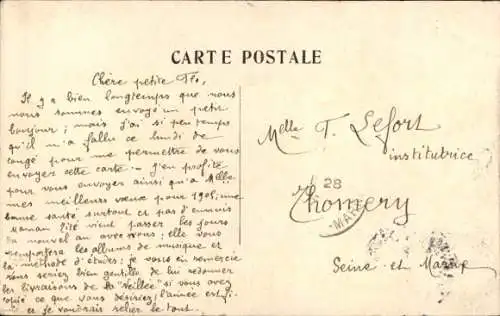 CARTE POSTALE
Chère petite Flo,
Il y a bien longtemps que nous
nous sommes envoyé un petit
bonjour ; mais j'ai si peu temps
qu'il m'a fallu ce lundi de
congé pour me permettre de vous
envoyer cette carte - J'en profite
pour vous envoyer ainsi qu'à Melle
mes meilleurs vœux pour 1908 ; une
bonne santé surtout et pas d'ennuis
Maman est venu passer les jours
du nouvel an avec nous ; elle vous
remportera les albums de musique et
la méthode d'études ; je vous en remercie
vous seriez bien gentille de lui redonner
les livraisons de la "Veillée" si vous avez
copié ce que vous désiriez ; l'année est
et je voudrais relier le tout.
Melle T. Lefort
institutrice
28
Thomery
MAR
Seine et Marne